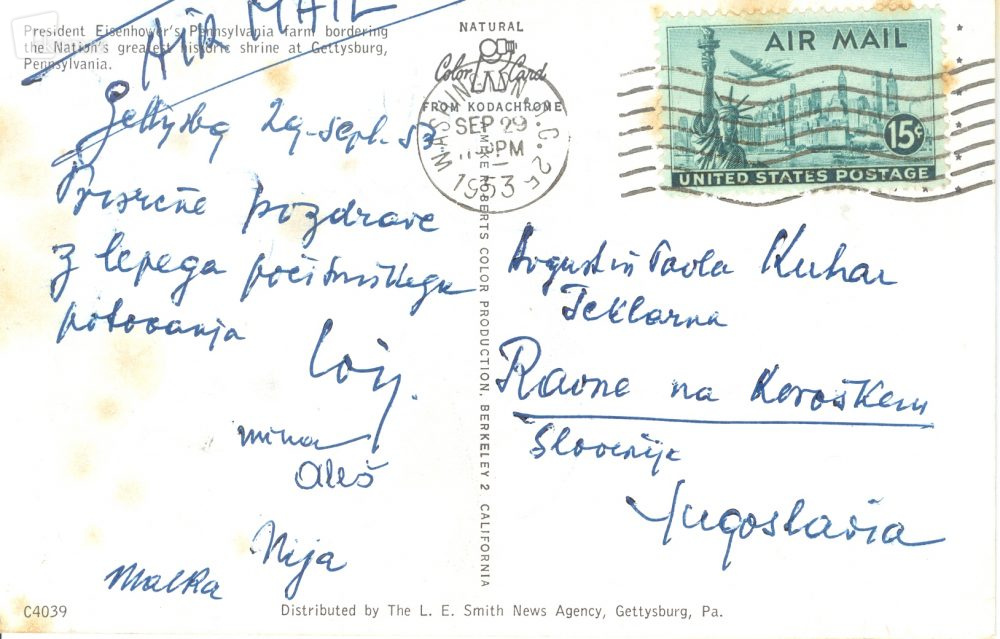 President Eisenhower's Pennsylvania farm bordering
the Nation's greatest historic shrine at Gettysburg,
Pennsylvania.
AIR MAIL
NATURAL
Color Card
FROM KODACHROME
WASHINGTON, D.C. 25
SEP 29
PM
1953
AIR MAIL
15¢
UNITED STATES POSTAGE
Gettysbg 29. sept. 53
Prisrčne pozdrave
z lepega počitniškega
potovanja
Lojz.
Mina
Aleš
Nija
Malka
MIKE ROBERTS COLOR PRODUCTION, BERKELEY 2 CALIFORNIA
Avgust in Pavla Kuhar
Jeklarna
Ravne na Koroškem
Slovenija
Jugoslavia
C4039
Distributed by The L. E. Smith News Agency, Gettysburg, Pa.